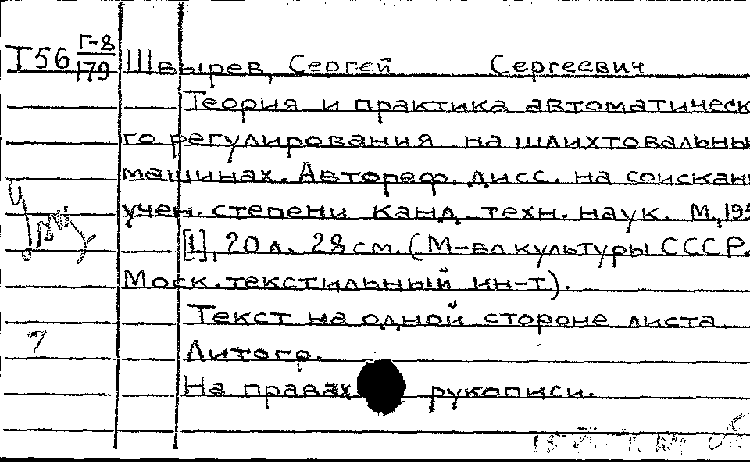 I56 Г-8/179 Швырев, Сергей Сергеевич
Теория и практика автоматическ
го регулирования на шлихтовальны
машинах. Автореф. дисс. на соискани
учен. степени канд. техн. наук. М., 195
[1], 20 л. 28 см. (М-во культуры СССР.
Моск. текстильный ин-т).
Текст на одной стороне листа
Литогр.
На правах рукописи.
7